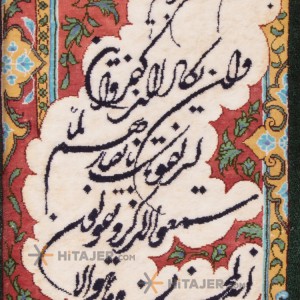 وان یکاد الذین کفروا
لیزلقونک بابصارهم لما
سمعوا الذکر و یقولون
انه لمجنون و ما هو الا
HiTAJER.COM
HiTAJER.COM